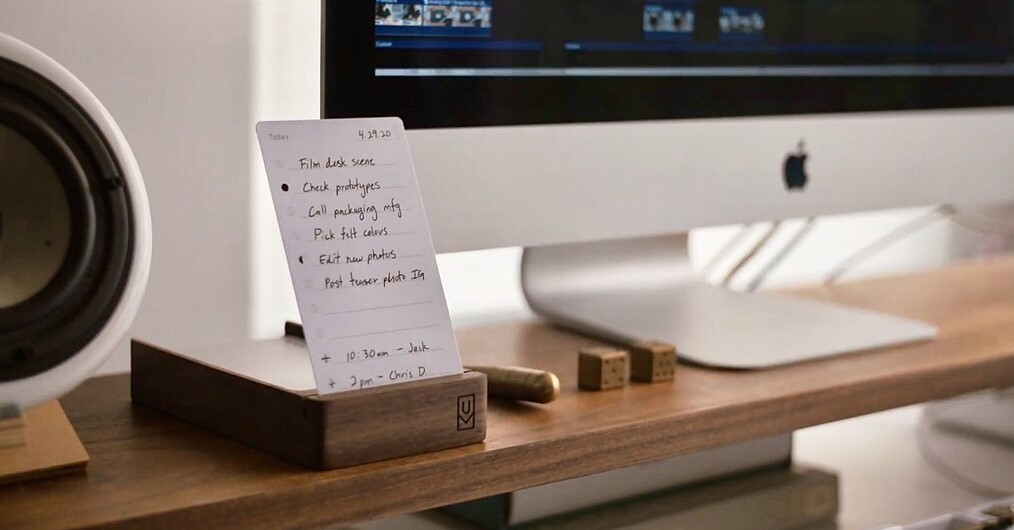 Today 4.29.20
Film desk scene
Check prototypes
Call packaging mfg
Pick felt colors
Edit new photos
Post teaser photo IG
+ 10:30am - Jack
+ 2pm - Chris D.